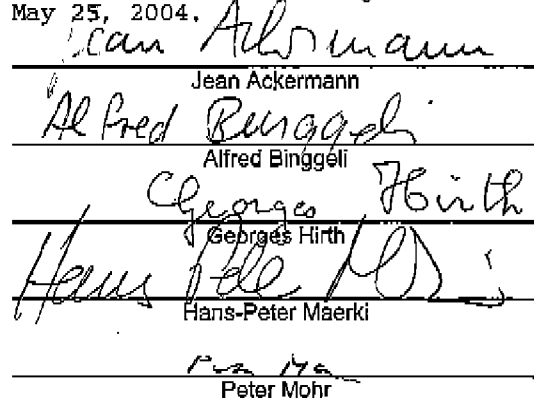 May 25, 2004.
Jean Ackermann
Jean Ackermann
Alfred Binggeli
Alfred Binggeli
Georges Hirth
Georges Hirth
Hans Pete
Hans-Peter Maerki
Peter Mohr